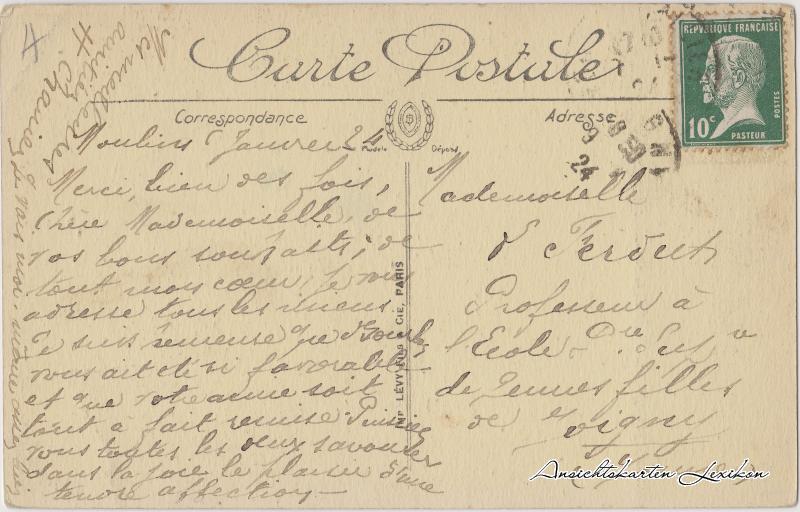 Carte Postale
Correspondance
Adresse
Modèle Déposé
RÉPUBLIQUE FRANÇAISE
10c
POSTES
PASTEUR
IMP. LÉVY FILS & CIE, PARIS
Moulins Janvier 24
Merci, bien des fois,
Chère Mademoiselle, de
vos bons souhaits; de
tout mon cœur, je vous
adresse tous les miens.
Je suis heureuse que
vous ait été si favorable
et que votre amie soit
tout à fait remise. Puissiez
vous toutes les deux savourer
dans la joie le plaisir d'une
tendre affection
Mes meilleures
amitiés
Je vais moi-même assez bien
Mademoiselle
Professeur à
l'Ecole
de Jeunes filles
de Joigny
Ansichtskarten Lexikon